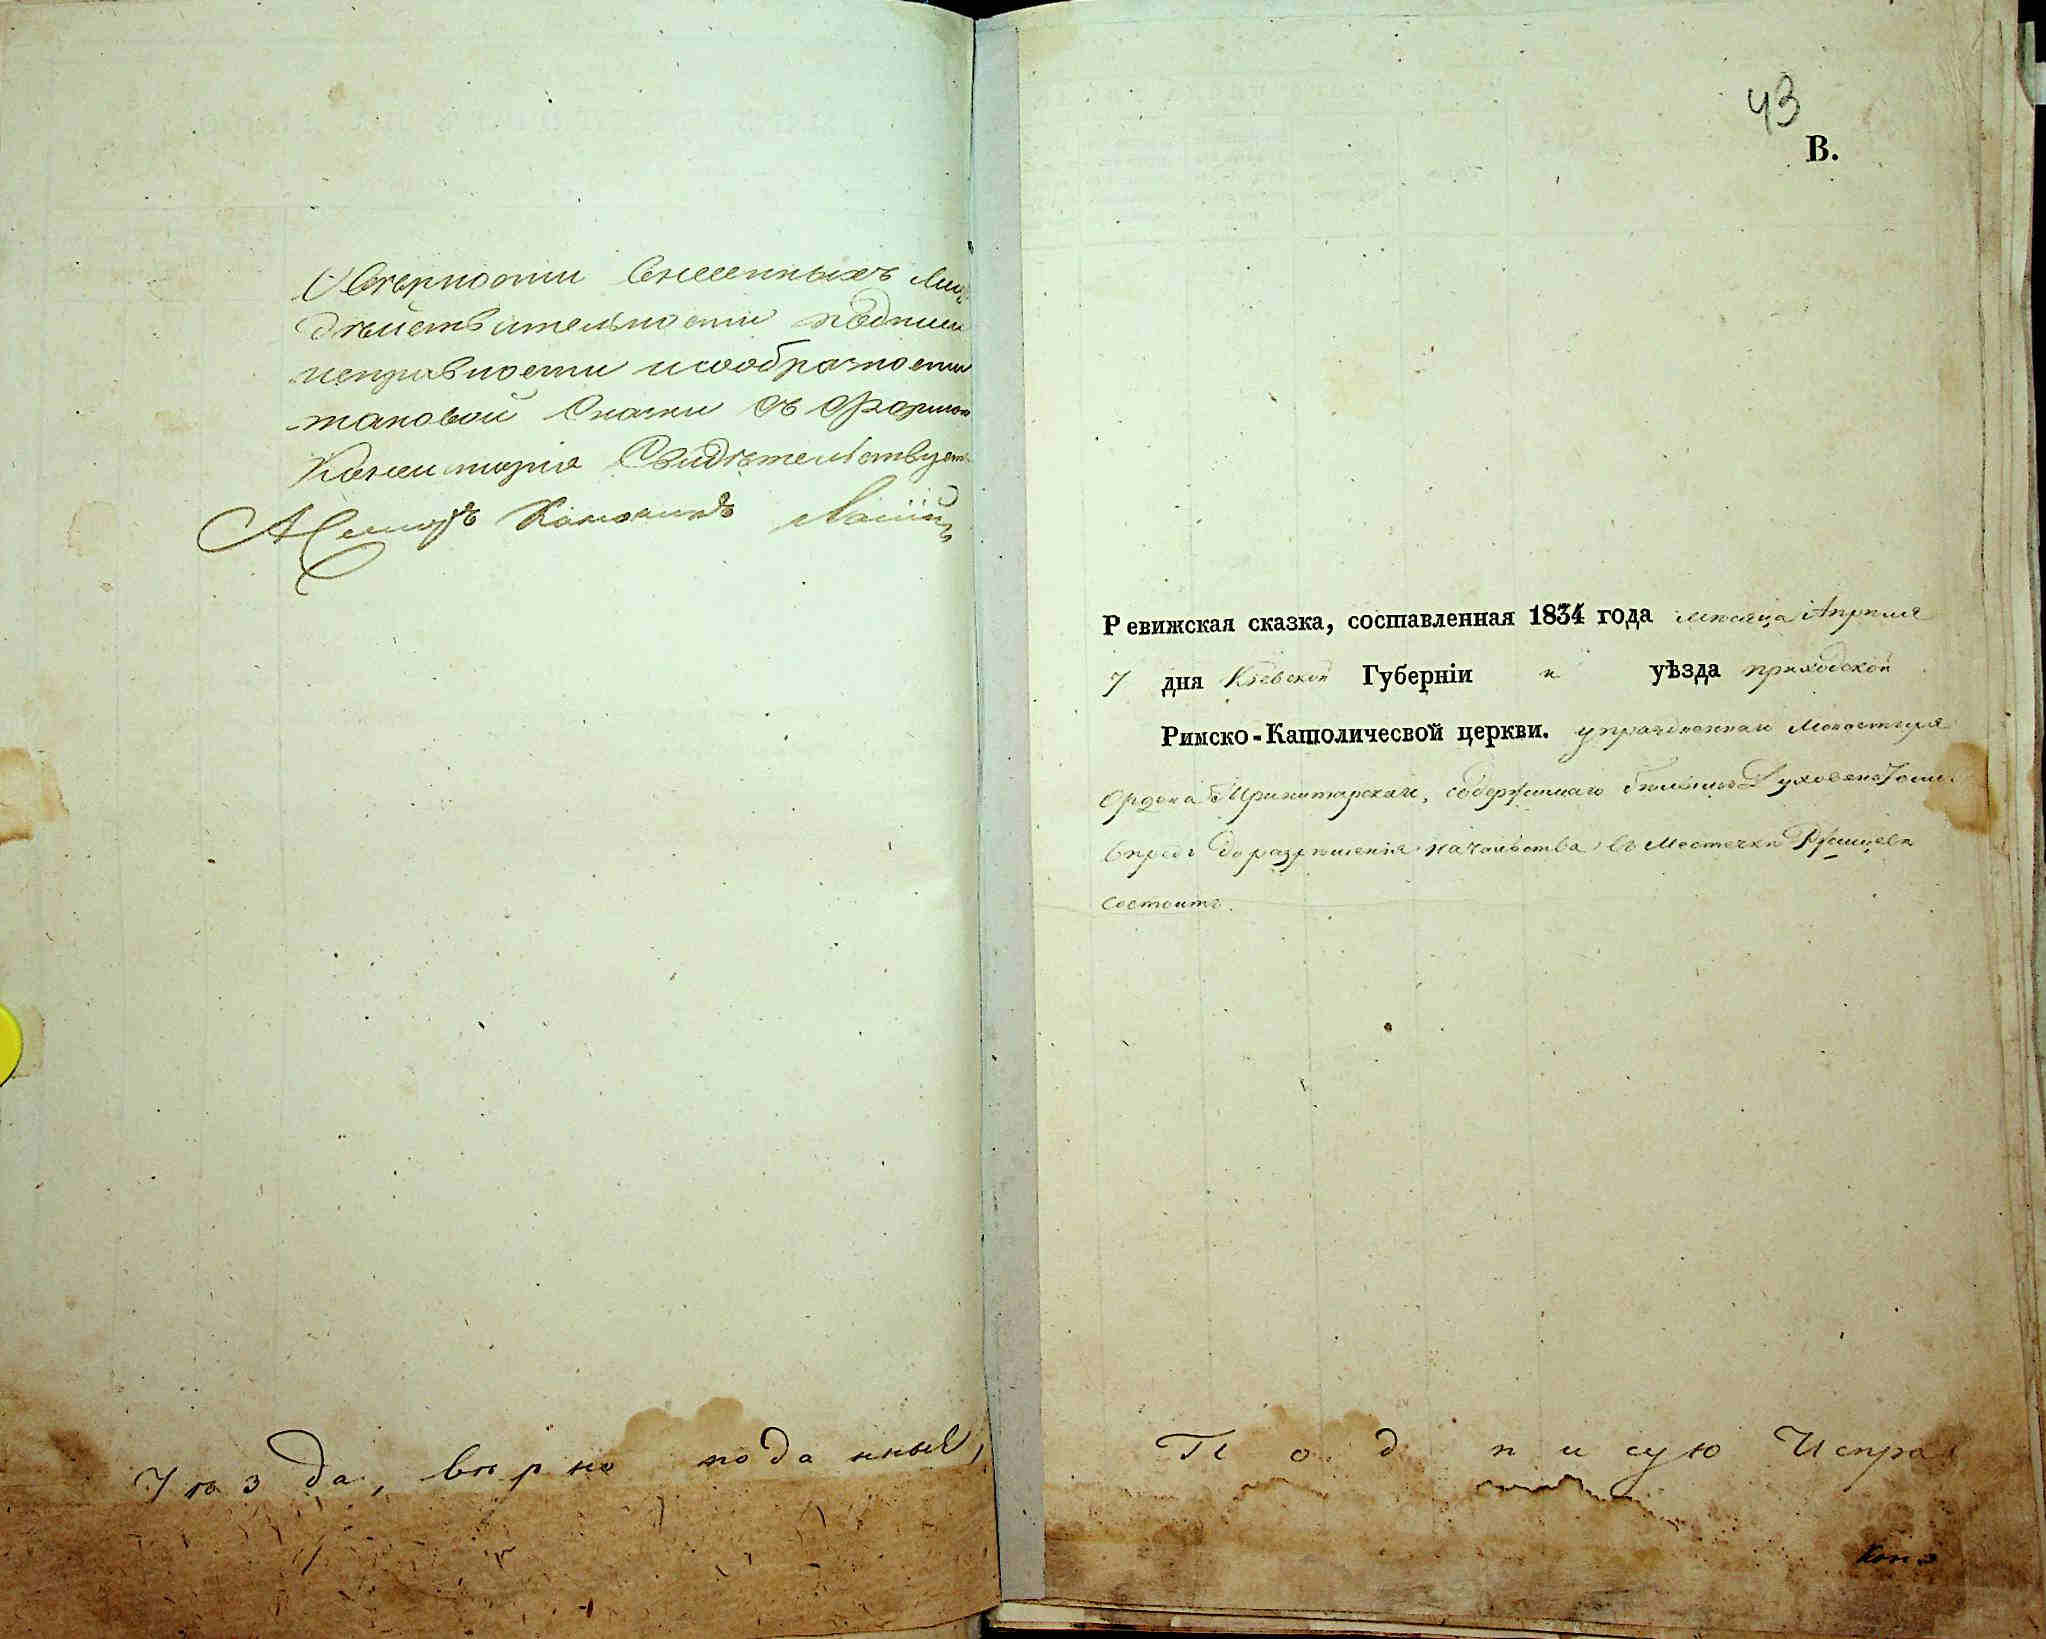 О верности внесенныхъ лиц
дѣйствительности подписи
исправности и сообразности
таковой Сказки съ Формою
Консисторія Свидѣтельствуетъ
Асессоръ Каноникъ
Уѣзда, вѣрно поданныя,
43
В.
Ревижская сказка, составленная 1834 года мѣсяца Апрѣля
7 дня Кіевской Губерніи и уѣзда приходской
Римско-Католичесвой церкви. упраздненнаго Монастыря
Ордена Тринитарскаго, содержимаго бѣлымъ Духовенствомъ
впредь до разрѣшенія начальства въ Местечкѣ Ржищевѣ
состоитъ.
Подписую Испра